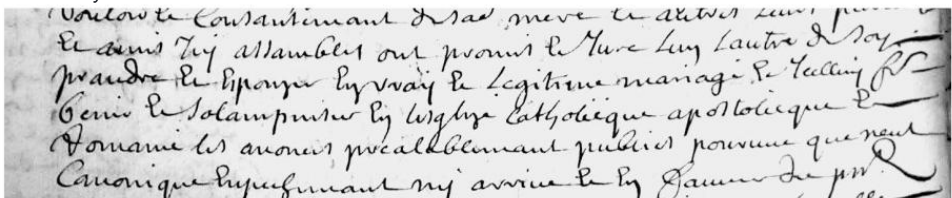 voulour le Consantemant de sad mere le autres leurs
le amis Icy assambles ont promis le Jure luy lautre de soy
prandre le Espouzer en vray le legitime mariage le Icelluy fe
benir le solampniser en lesglize Catholicque apostolicque le
Romaine les anonces precalablemant publies pourveu que neul
Canonique Empechemant ny arrive le en faveur du pnt